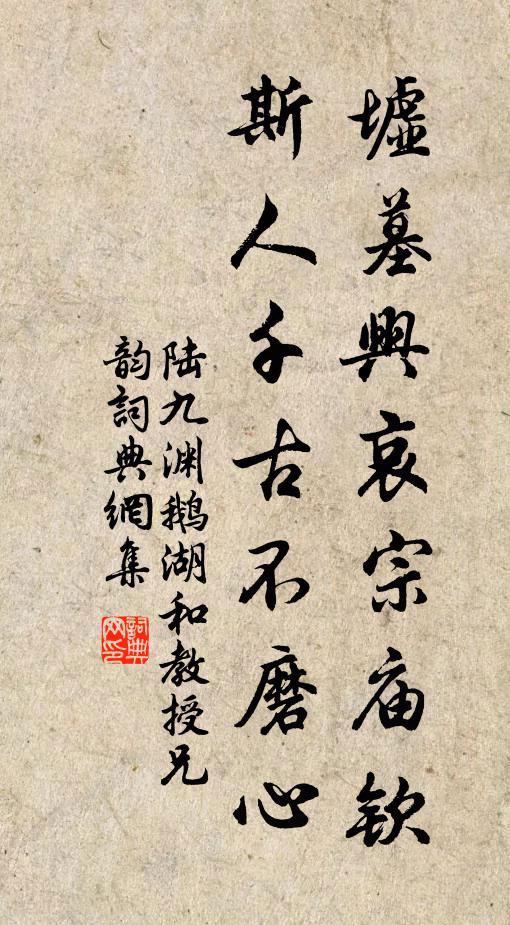 墟墓興哀宗庙钦
斯人千古不磨心
陆九渊鹅湖和教授兄
韵詞典網集
詞典网印